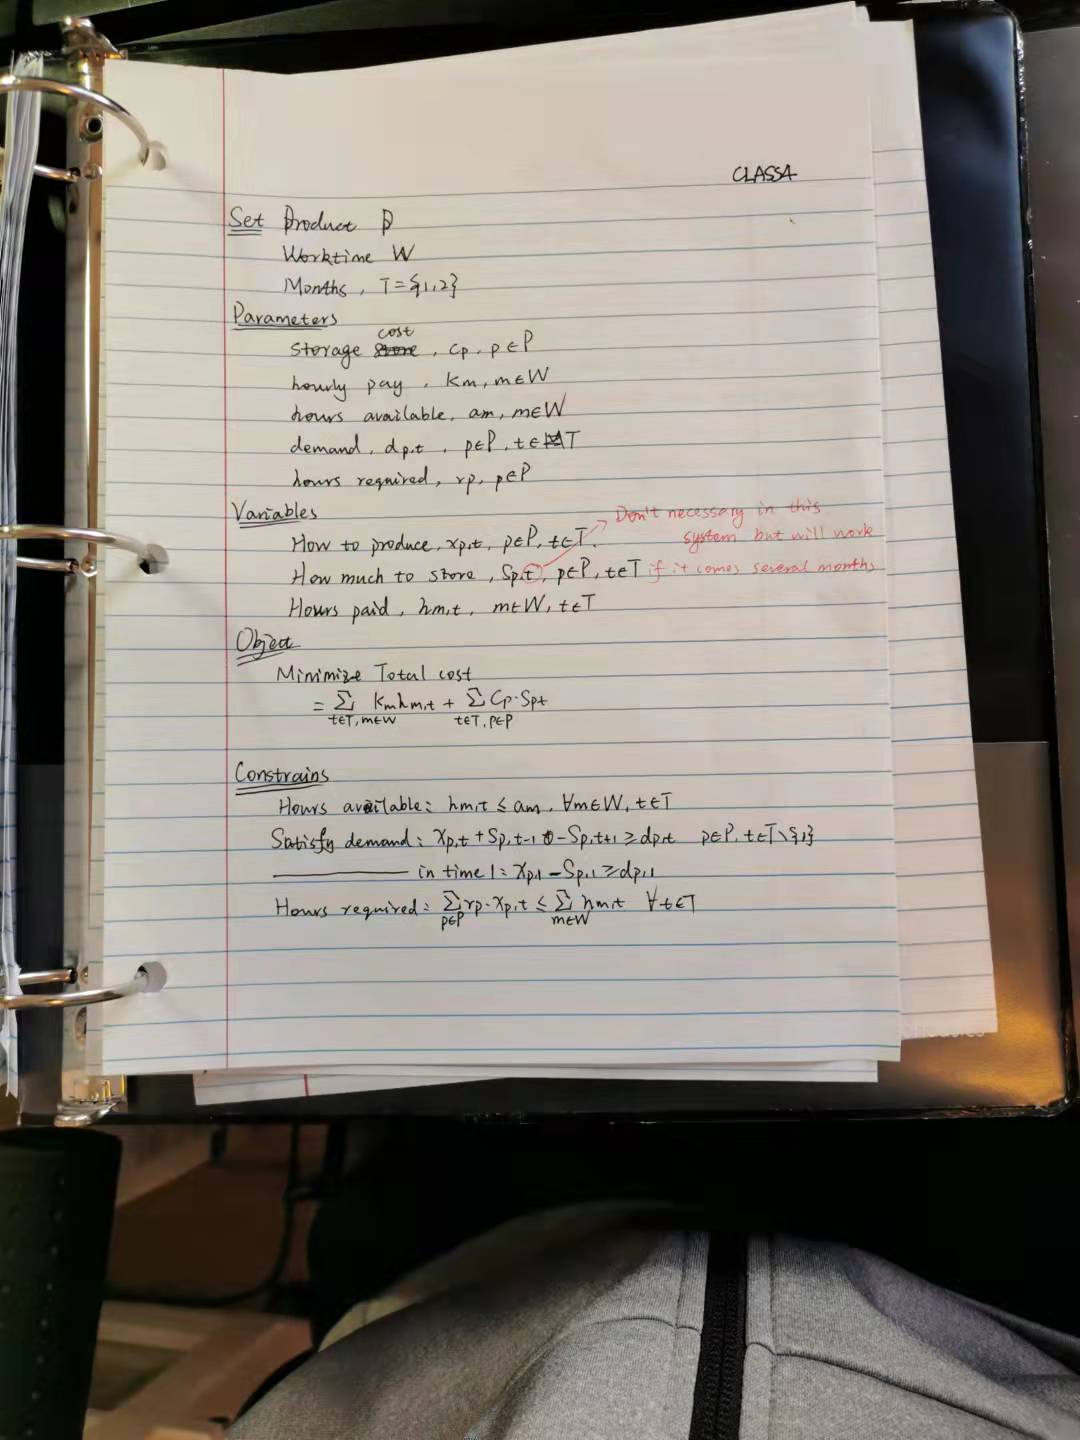 CLASS4
Set Product P
Worktime W
Months, T={1,2}
Parameters
cost
Storage store, Cp, p∈P
hourly pay, Km, m∈W
hours available, am, m∈W
demand, dp,t, p∈P, t∈T
hours required, rp, p∈P
Variables
How to produce, xp,t, p∈P, t∈T.
How much to store, Sp,t, p∈P, t∈T
Hours paid, hm,t, m∈W, t∈T
Don't necessary in this
system but will work
if it comes several months
Object
Minimize Total cost
= Σ Kmhm,t + Σ Cp·Spt
t∈T, m∈W t∈T, p∈P
Constrains
Hours available: hm,t ≤ am, ∀m∈W, t∈T
Satisfy demand: Xp,t + Sp,t-1 - Sp,t+1 ≥ dp,t p∈P, t∈T\{1}
in time 1: Xp,1 - Sp,1 ≥ dp,1
Hours required: Σ rp·Xp,t ≤ Σ hm,t ∀t∈T
p∈P m∈W